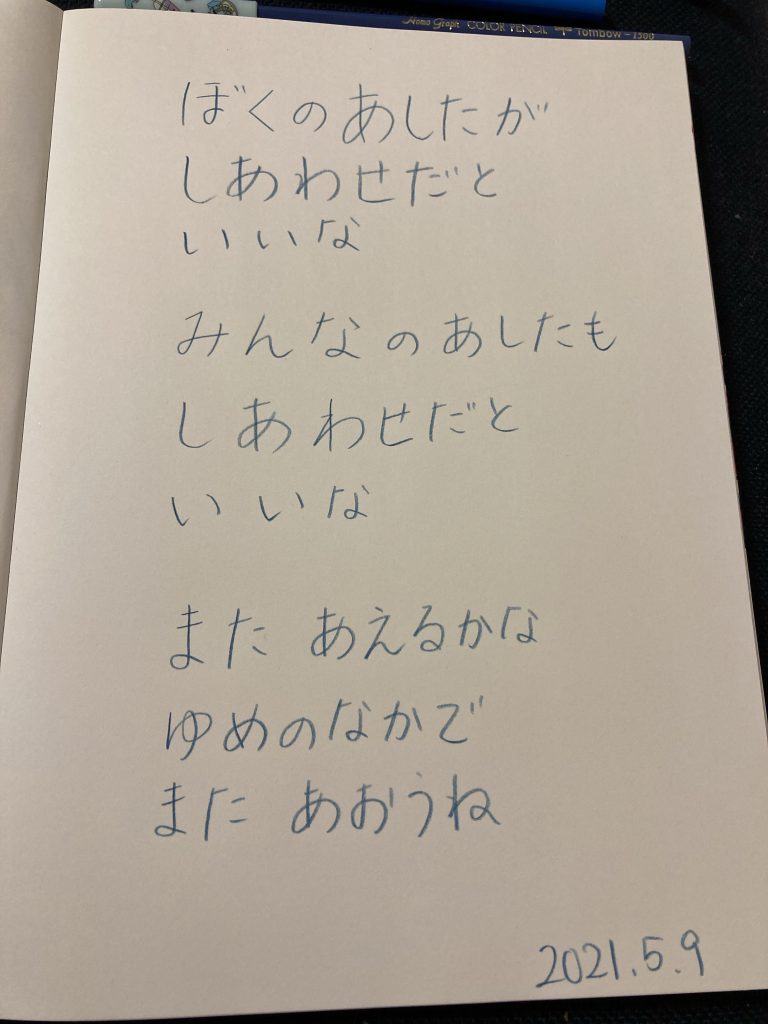 Homo Graph COLOR PENCIL Tombow - 1500
ぼくのあしたが
しあわせだと
いいな
みんなのあしたも
しあわせだと
いいな
また あえるかな
ゆめのなかで
また あおうね
2021.5.9